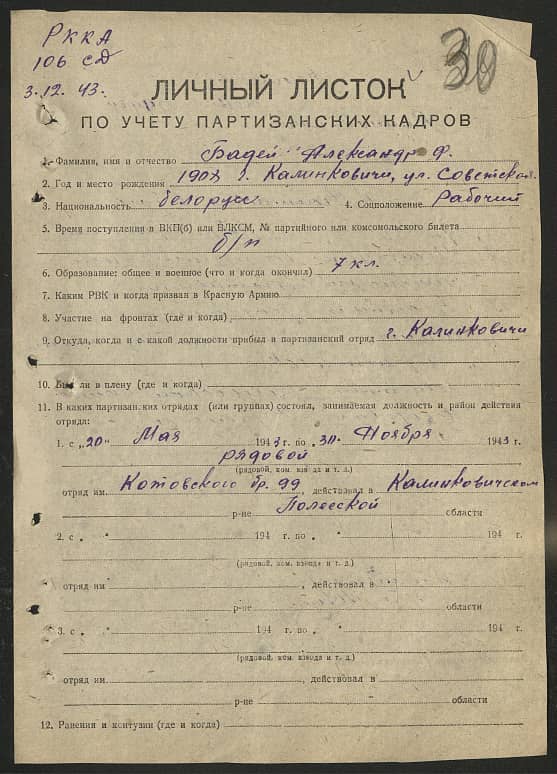 РККА
106 сд
3.12.43.
30
ЛИЧНЫЙ ЛИСТОК
ПО УЧЕТУ ПАРТИЗАНСКИХ КАДРОВ
1. Фамилия, имя и отчество Бадей Александр Ф.
2. Год и место рождения г. Калинковичи, ул. Советская
3. Национальность белорусс 4. Соцположение Рабочий
5. Время поступления в ВКП(б) или ВЛКСМ, № партийного или комсомольского билета
б/п
6. Образование: общее и военное (что и когда окончил) 7 кл.
7. Каким РВК и когда призван в Красную Армию
8. Участие на фронтах (где и когда)
9. Откуда, когда и с какой должности прибыл в партизанский отряд г. Калинковичи
10. Был ли в плену (где и когда)
11. В каких партизанских отрядах (или группах) состоял, занимаемая должность и район действия
отряда:
1. с „20" Мая 1943 г. по „30" Ноября 1943 г.
рядовой
(рядовой, ком. взвода и т. д.)
отряд им. Котовского бр. 99, действовал в Калинковичском
р-не Полесской области
2. с „ " 194 г. по „ " 194 г.
(рядовой, ком. взвода и т. д.)
отряд им. , действовал в
р-не области
3. с „ " 194 г. по „ " 194 г.
(рядовой, ком. взвода и т. д.)
отряд им. , действовал в
р-не области
12. Ранения и контузии (где и когда)